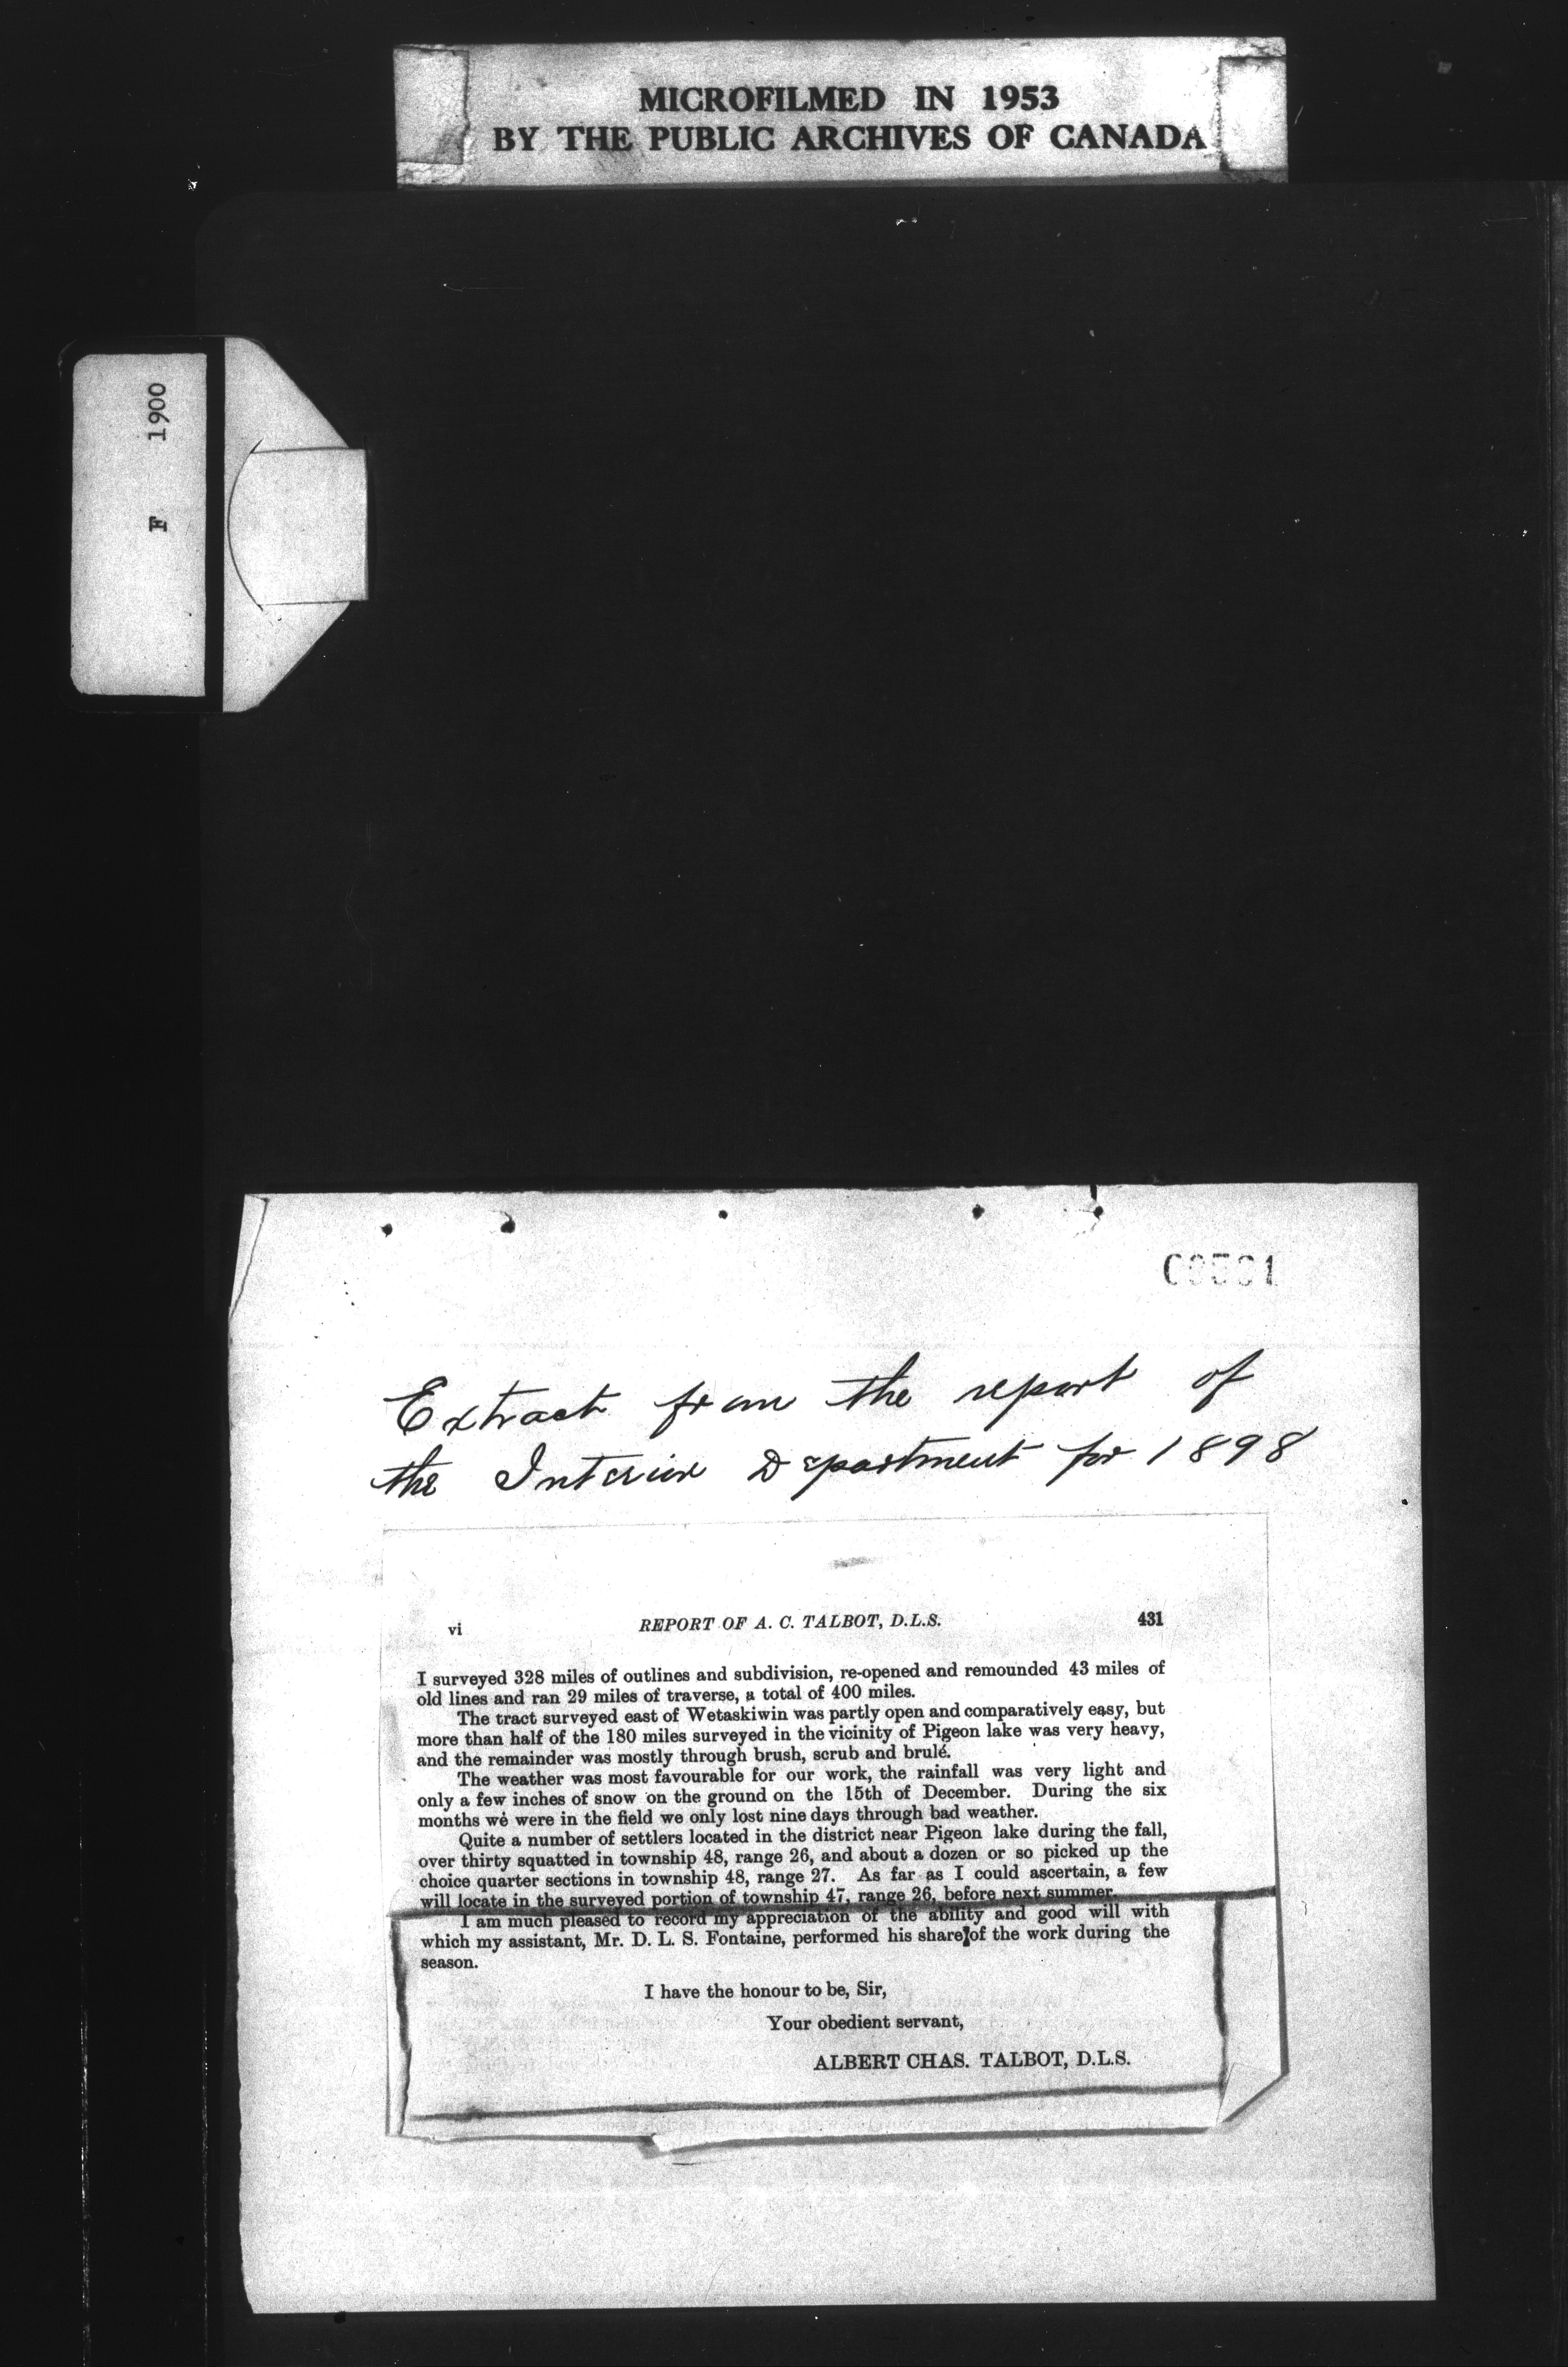 MICROFILMED IN 1953
BY THE PUBLIC ARCHIVES OF CANADA
F 1900
Extract from the report of
the Interior Department for 1898
vi REPORT OF A. C. TALBOT, D.L.S. 431
I surveyed 328 miles of outlines and subdivision, re-opened and remounded 43 miles of
old lines and ran 29 miles of traverse, a total of 400 miles.
The tract surveyed east of Wetaskiwin was partly open and comparatively easy, but
more than half of the 180 miles surveyed in the vicinity of Pigeon lake was very heavy,
and the remainder was mostly through brush, scrub and brulé.
The weather was most favourable for our work, the rainfall was very light and
only a few inches of snow on the ground on the 15th of December. During the six
months we were in the field we only lost nine days through bad weather.
Quite a number of settlers located in the district near Pigeon lake during the fall,
over thirty squatted in township 48, range 26, and about a dozen or so picked up the
choice quarter sections in township 48, range 27. As far as I could ascertain, a few
will locate in the surveyed portion of township 47, range 26, before next summer.
I am much pleased to record my appreciation of the ability and good will with
which my assistant, Mr. D. L. S. Fontaine, performed his share of the work during the
season.
I have the honour to be, Sir,
Your obedient servant,
ALBERT CHAS. TALBOT, D.L.S.